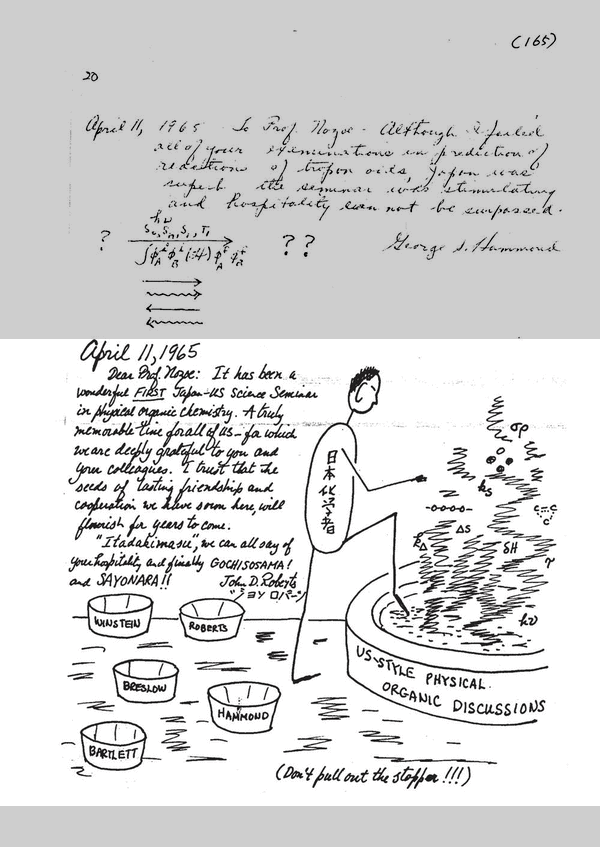 (165)
20
April 11, 1965 To Prof. Nozoe - Although I failed
all of your examinations in prediction of
reactions of tropon oids, Japan was
superb the seminar was stimulating
and hospitality can not be surpassed.
hν
? S₀, S₁, T₁ ? ?
George S. Hammond
April 11, 1965
Dear Prof. Nozoe: It has been a
wonderful FIRST Japan-US Science Seminar
in physical organic chemistry. A truly
memorable time for all of us - for which
we are deeply grateful to you and
your colleagues. I trust that the
seeds of lasting friendship and
cooperation we have sown here, will
flourish for years to come.
"Itadakimasu", we can all say of
your hospitality and finally GOCHISOSAMA!
and SAYONARA!! John D. Roberts
"ジョン ロバーツ"
日本化学者
σρ
ks
-o-o-o-o-
c=c
c
ΔS
kΔ
δH
τ
hν
WINSTEIN
ROBERTS
BRESLOW
HAMMOND
BARTLETT
US-STYLE PHYSICAL-
ORGANIC DISCUSSIONS
(Don't pull out the stopper !!!)